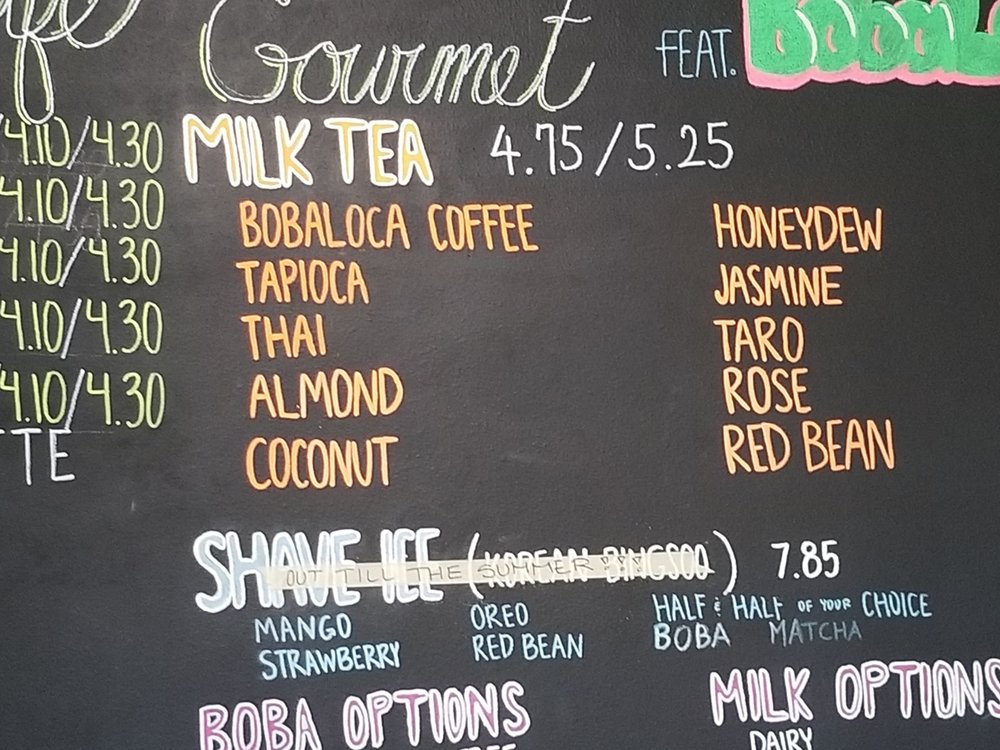 Gourmet FEAT.
4.10/4.30
4.10/4.30
4.10/4.30
4.10/4.30
4.10/4.30
MILK TEA 4.75/5.25
BOBALOCA COFFEE
TAPIOCA
THAI
ALMOND
COCONUT
HONEYDEW
JASMINE
TARO
ROSE
RED BEAN
SHAVE ICE (KOREAN BINGSOO) 7.85
OUT TILL THE SUMMER!!!
MANGO
STRAWBERRY
OREO
RED BEAN
HALF & HALF OF YOUR CHOICE
BOBA MATCHA
BOBA OPTIONS
MILK OPTIONS
DAIRY